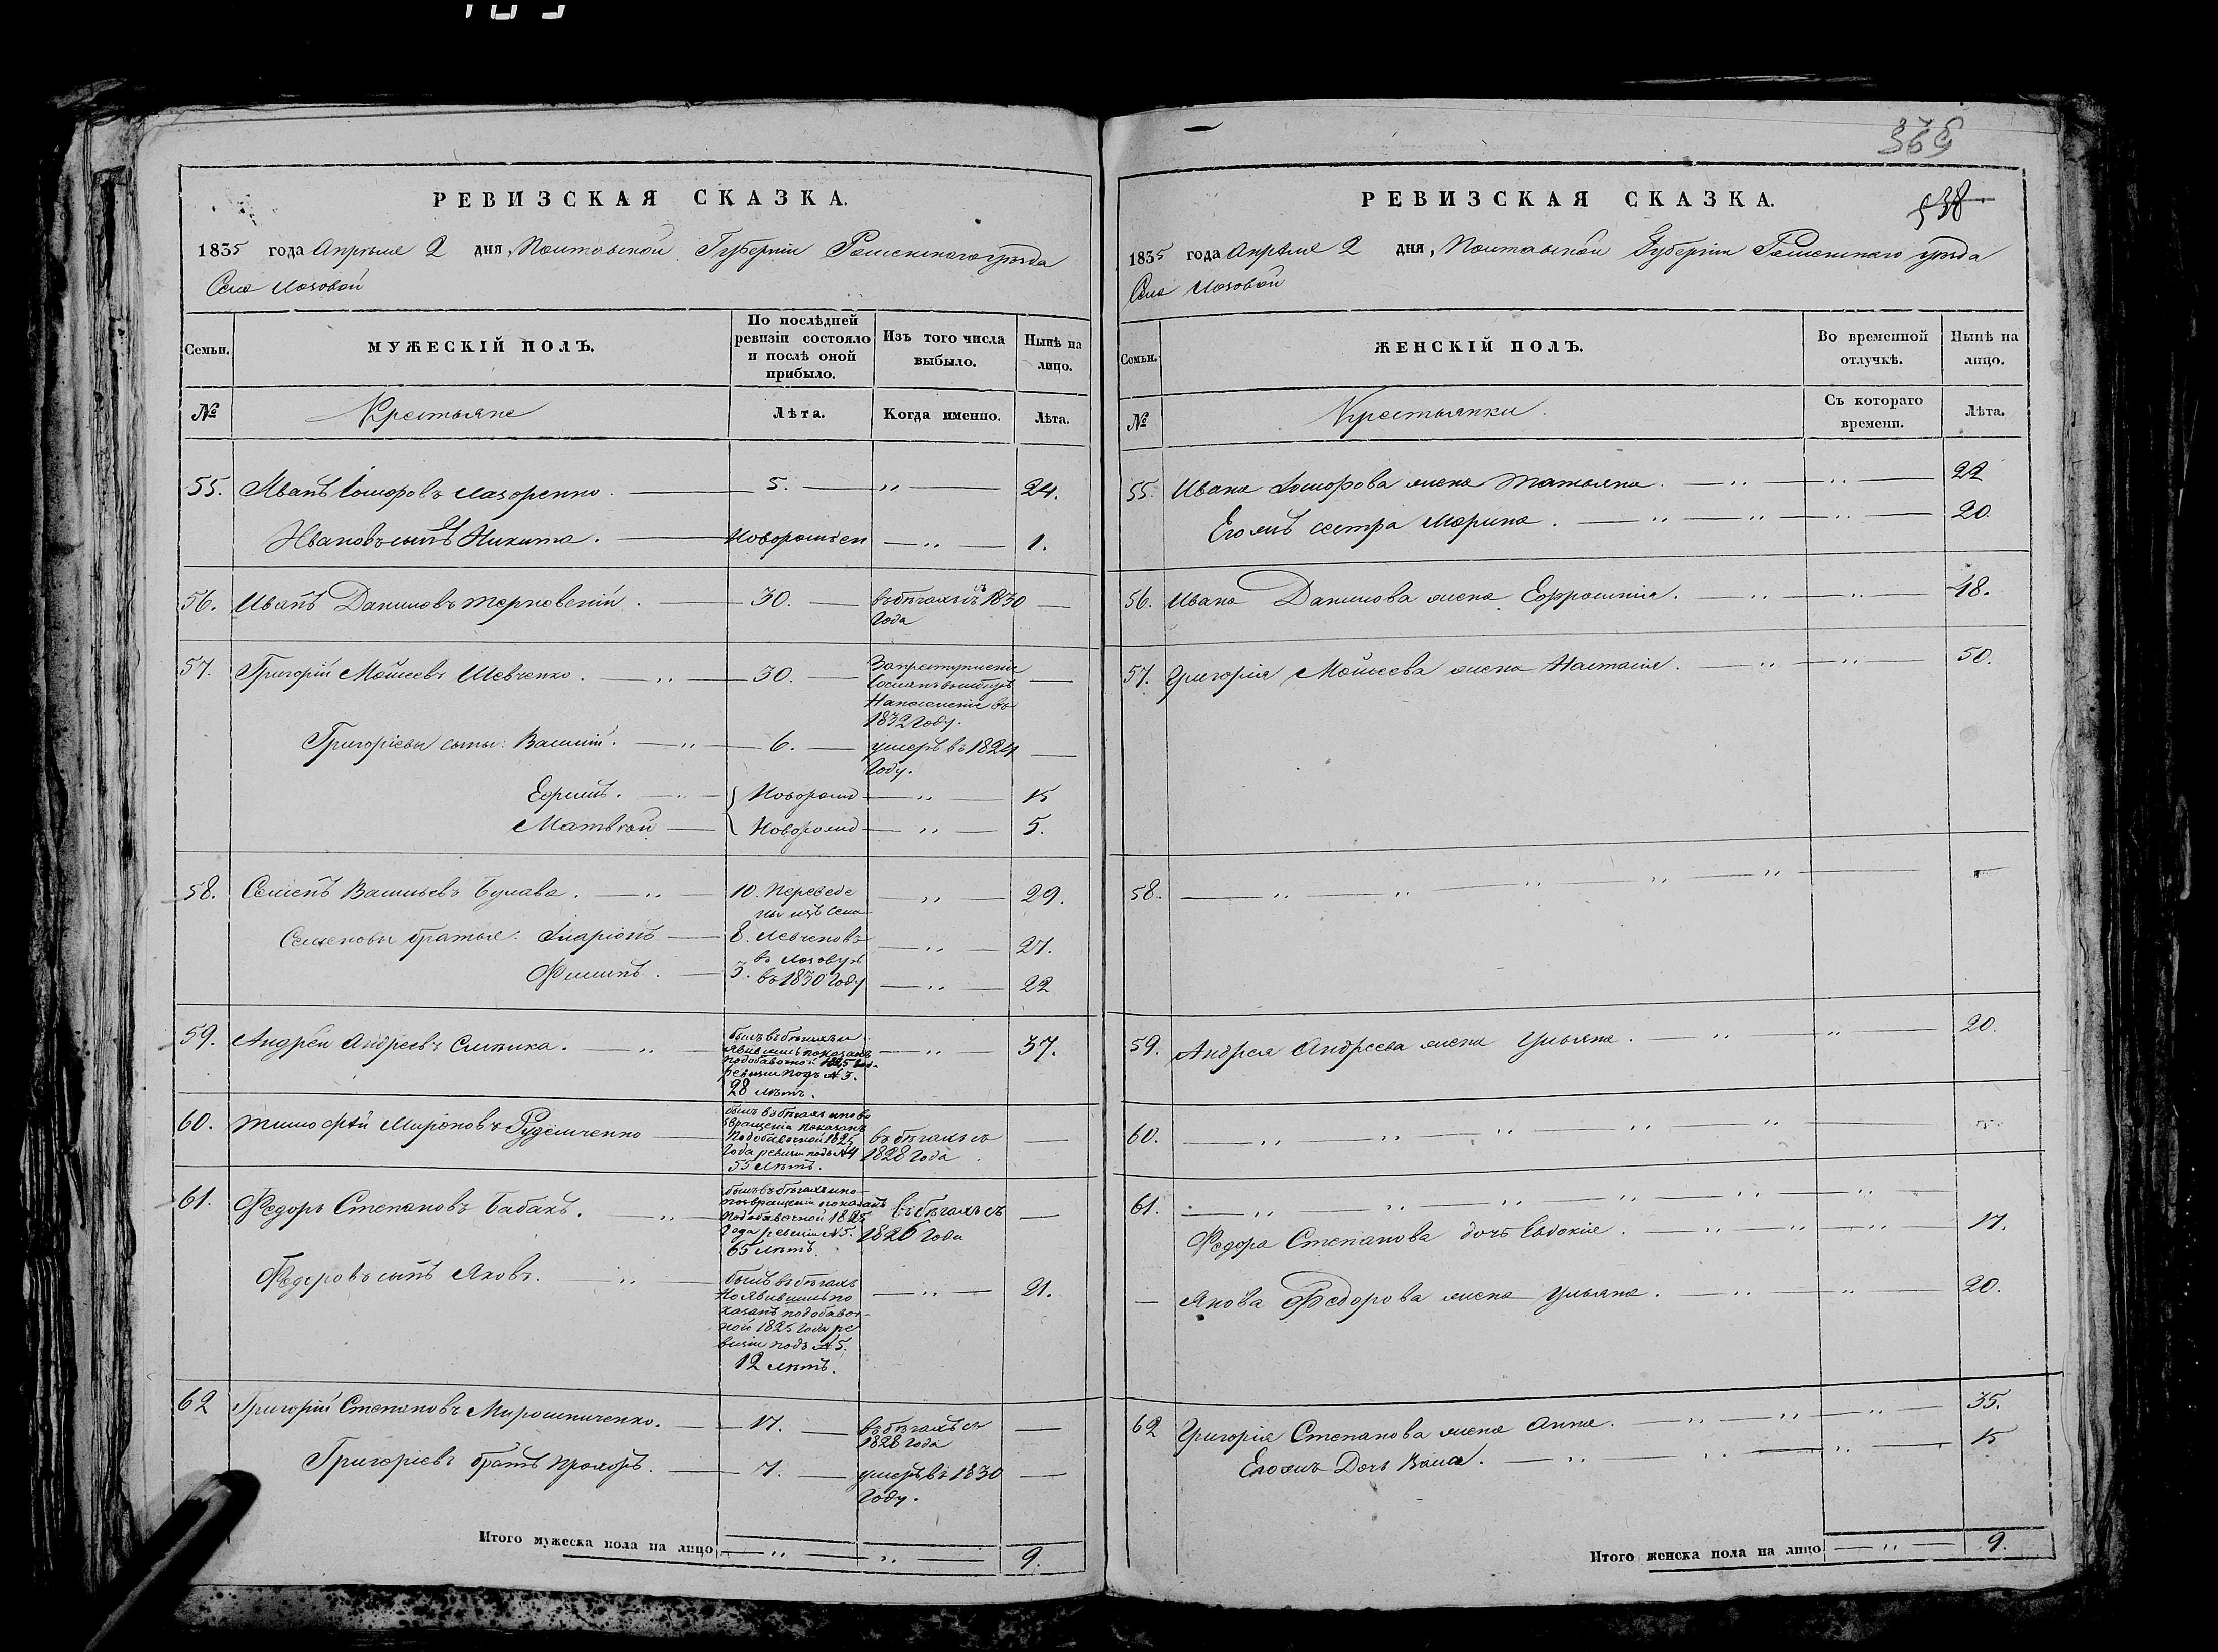 369
РЕВИЗСКАЯ СКАЗКА.
1835 года Апреля 2 дня, Полтавской Губернiи Роменского уѣзда
Села Лозовой
Семьи.
МУЖЕСКIЙ ПОЛЪ.
По послѣдней ревизiи состояло и послѣ оной прибыло.
Изъ того числа выбыло.
Нынѣ на лицо.
№
Крестьяне
Лѣта.
Когда именно.
Лѣта.
55. Иванъ Лазоренко. 5. 24.
Ивановъ сынъ Никита. Новорожден 1.
56. Иванъ Даниловъ Терновскiй. 30. въ бѣгахъ съ 1830
Года
57. Григорiй Моисеевъ Шевченко. 30. За преступленiе
сосланъ
На поселенiе въ
1832 Году.
Григорiевы сыны: Василiй. 6. умеръ въ 1824
Году.
Ефимъ. Новорожд 15
Матвѣй Новорожд 5.
58. Семенъ Васильевъ Булава. 10. Переведе 29.
ны изъ Села
Семеновы братья: Иларiонъ 8. Левченковъ 27.
въ Лозовую
Филипъ. 3. въ 1830 Году 22
59. Андрей Андреевъ Слипика. былъ въ бѣгахъ и 37.
явившись показанъ
по добавочной 1825 год.
ревизiи подъ № 3.
28 лѣтъ.
60. Тимофѣй Мироновъ Руденченко былъ въ бѣгахъ и по во
звращенiи показанъ
По добавочной 1825 въ бѣгахъ съ
Года ревизiи подъ №4 1828 Года
55 лѣтъ.
61. Федоръ Степановъ Бабакъ. былъ въ бѣгахъ и по
возвращенiи показанъ въ бѣгахъ съ
По добавочной 1825
Года ревизiи № 5. 1826 Года
65 лѣтъ.
Федоровъ сынъ Яковъ. былъ въ бѣгахъ 21.
Но явившись по
казанъ по добавоч-
ной 1825 Года ре
визiи подъ № 5.
12 лѣтъ.
62 Григорiй Степановъ Мирошниченко. 17. въ бѣгахъ съ
1828 Года
Григорiевъ братъ Прохоръ. 7. умеръ въ 1830
Году.
Итого мужеска пола на лицо 9.
РЕВИЗСКАЯ СКАЗКА.
538
1835 года Апреля 2 дня, Полтавской Губернiи Роменского уѣзда
Села Лозовой
Семьи.
ЖЕНСКIЙ ПОЛЪ.
Во временной отлучкѣ.
Нынѣ на лицо.
№
Крестьянки.
Съ котораго времени.
Лѣта.
55. Ивана жена Татьяна. 22
Его жъ сестра Марина. 20.
56. Ивана Данилова жена Ефросинiя. 48.
57. Григорiя Моисеева жена Настасiя. 50.
58.
59. Андрея Андреева жена Ульяна. 20.
60.
61.
Федора Степанова дочь Евдокiя. 17.
Якова Федорова жена Ульяна. 20.
62 Григорiя Степанова жена Анна. 35.
Его жъ Дочь Васса. 15
Итого женска пола на лицо 9.